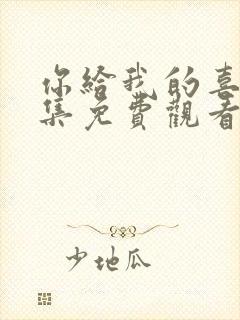 你給我的喜
集免費觀看
少地瓜